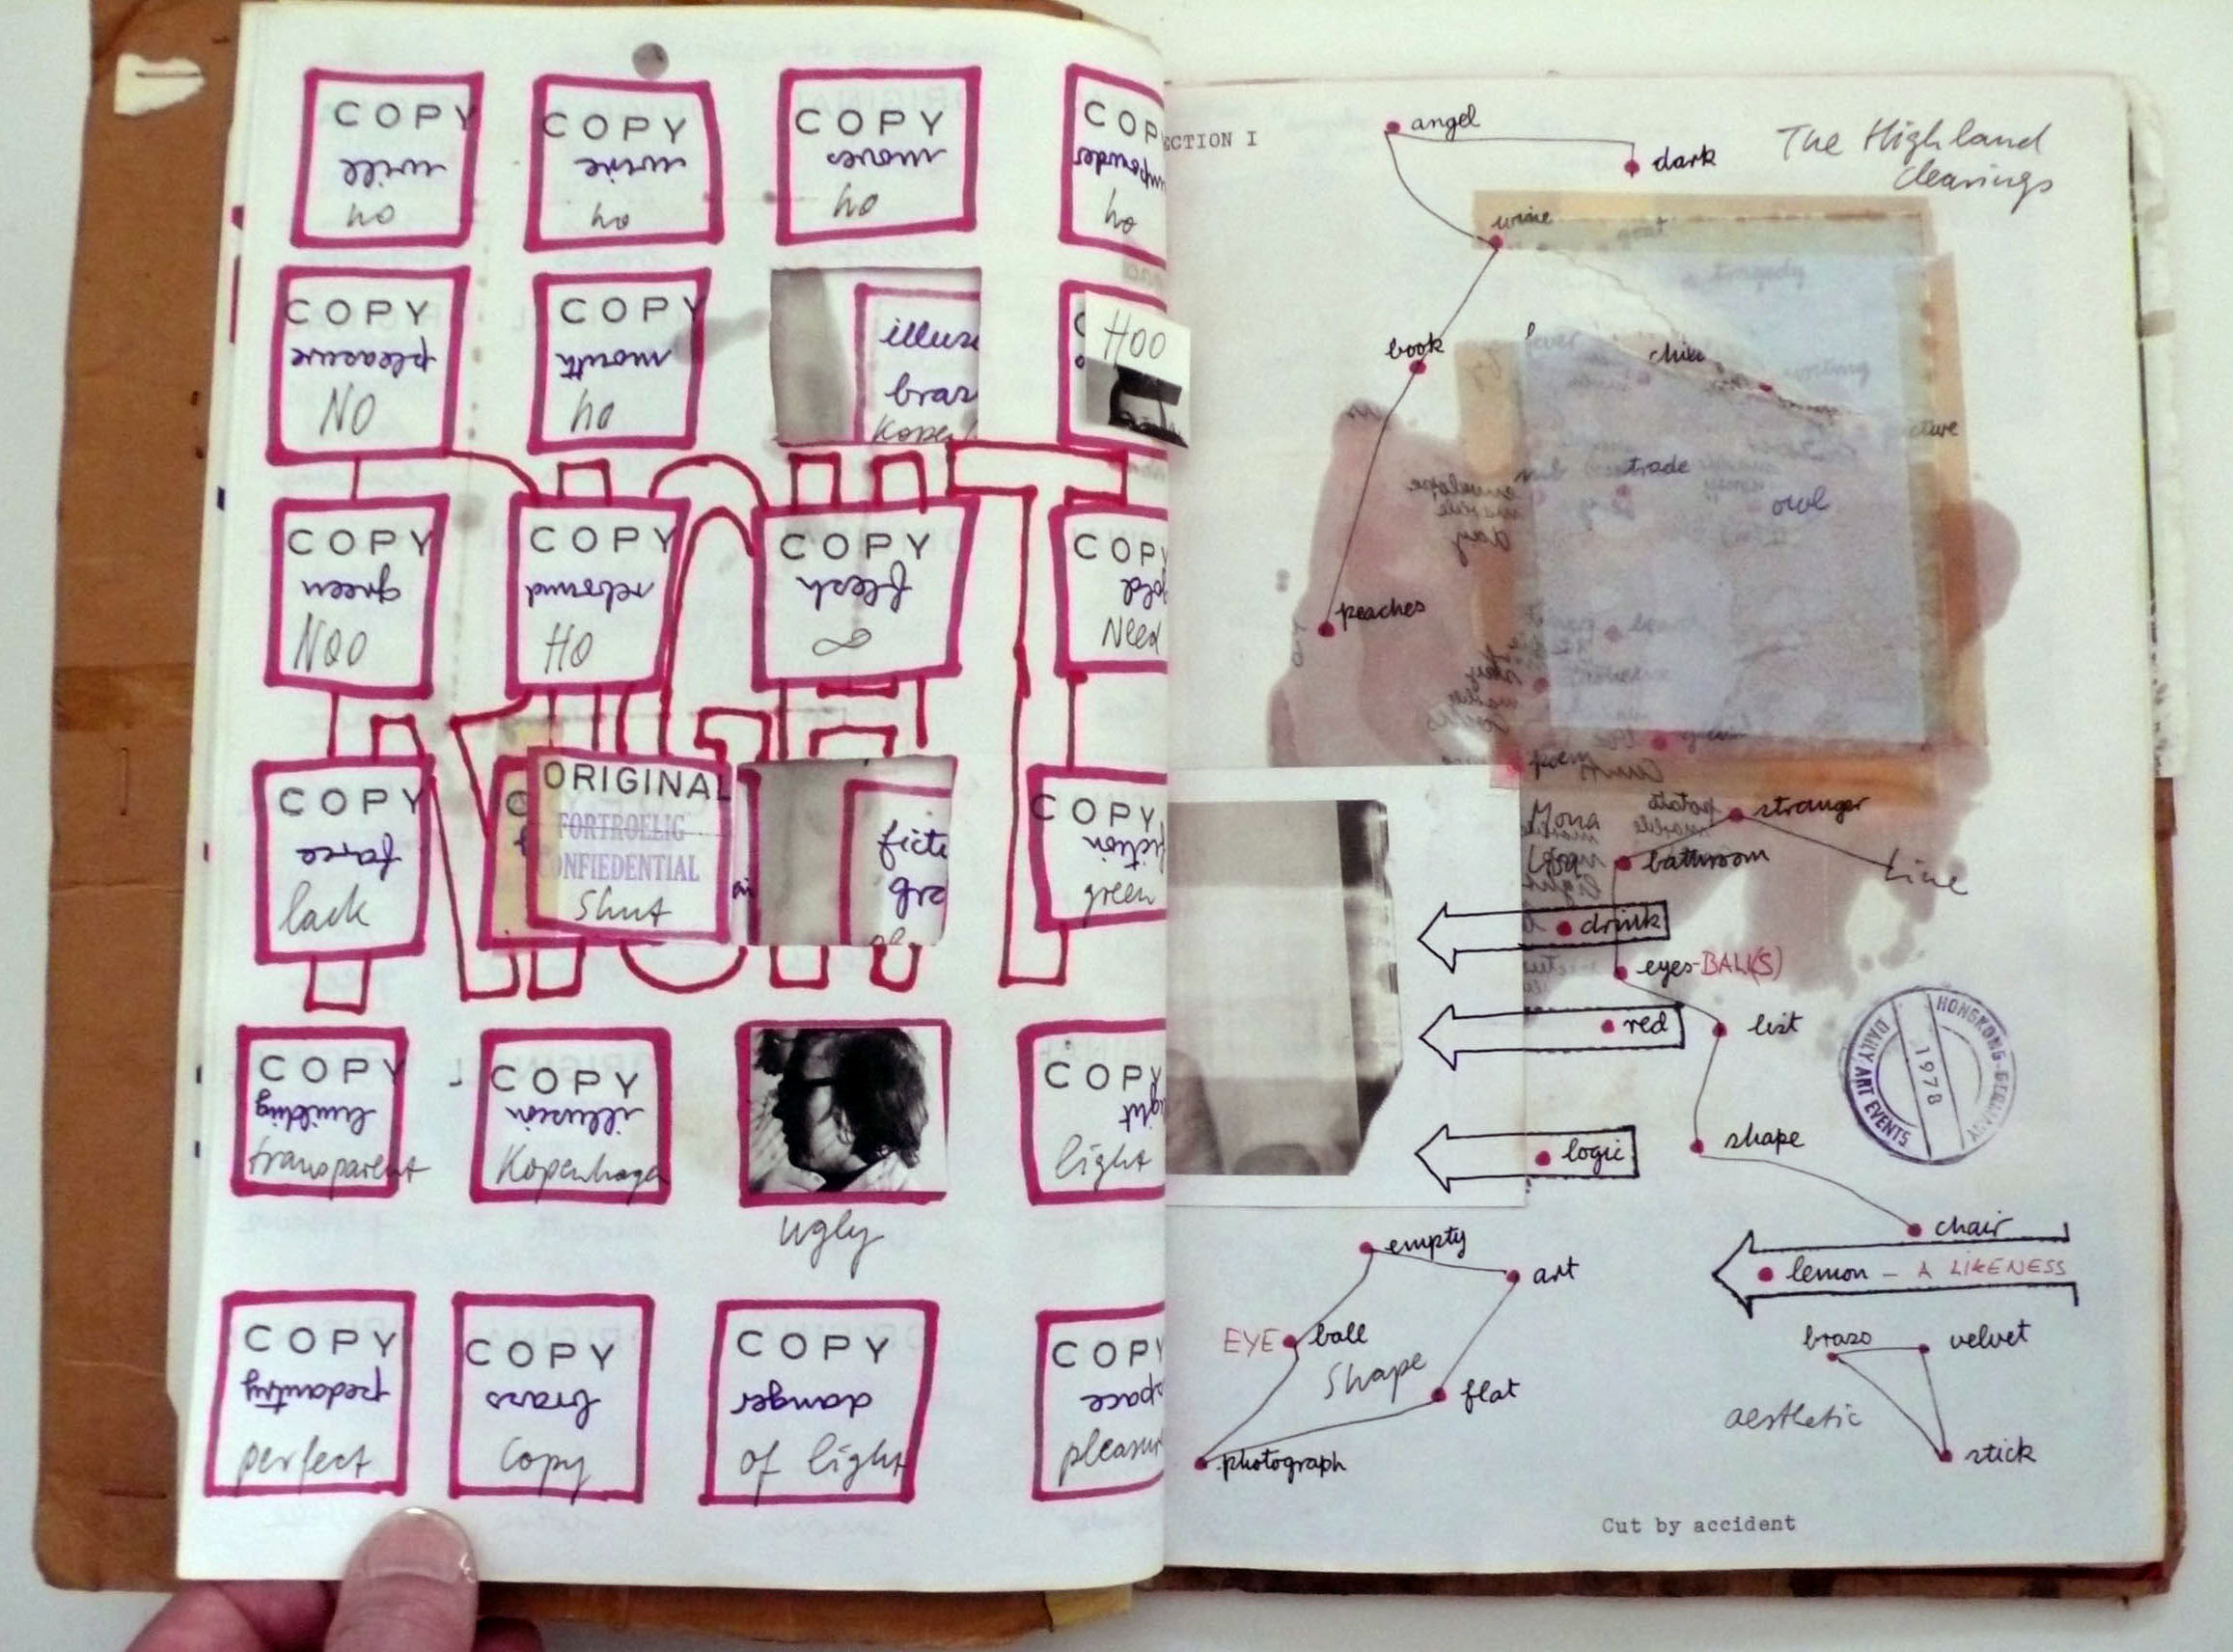 COPY
will
no
COPY
wine
no
COPY
moves
no
COP
no
COPY
pleasure
NO
COPY
mouth
no
illus
bras
Kopen
HOO
COPY
green
NOO
COPY
rebound
HO
COPY
flesh
∞
COPY
Need
COPY
farce
lack
ORIGINAL
FORTROELIG
ONFIEDENTIAL
Shut
ficti
COPY
green
COPY
building
transparent
COPY
illusion
Kopenhagen
ugly
COPY
light
COPY
pedantry
perfect
COPY
brass
Copy
COPY
danger
of light
COPY
space
pleasur
ECTION I
The Highland
Clearings
angel
dark
wine
goat
tragedy
book
fever
chin
picture
trade
owl
envelope
marble
day
peaches
poem
Mona
stranger
bathroom
Line
drink
eyes-BALL(S)
red
list
HONGKONG-GERMANY
1978
DAILY ART EVENTS
logic
shape
chair
empty
art
lemon - A LIKENESS
EYE ball
Shape
flat
photograph
braso
velvet
aesthetic
stick
Cut by accident